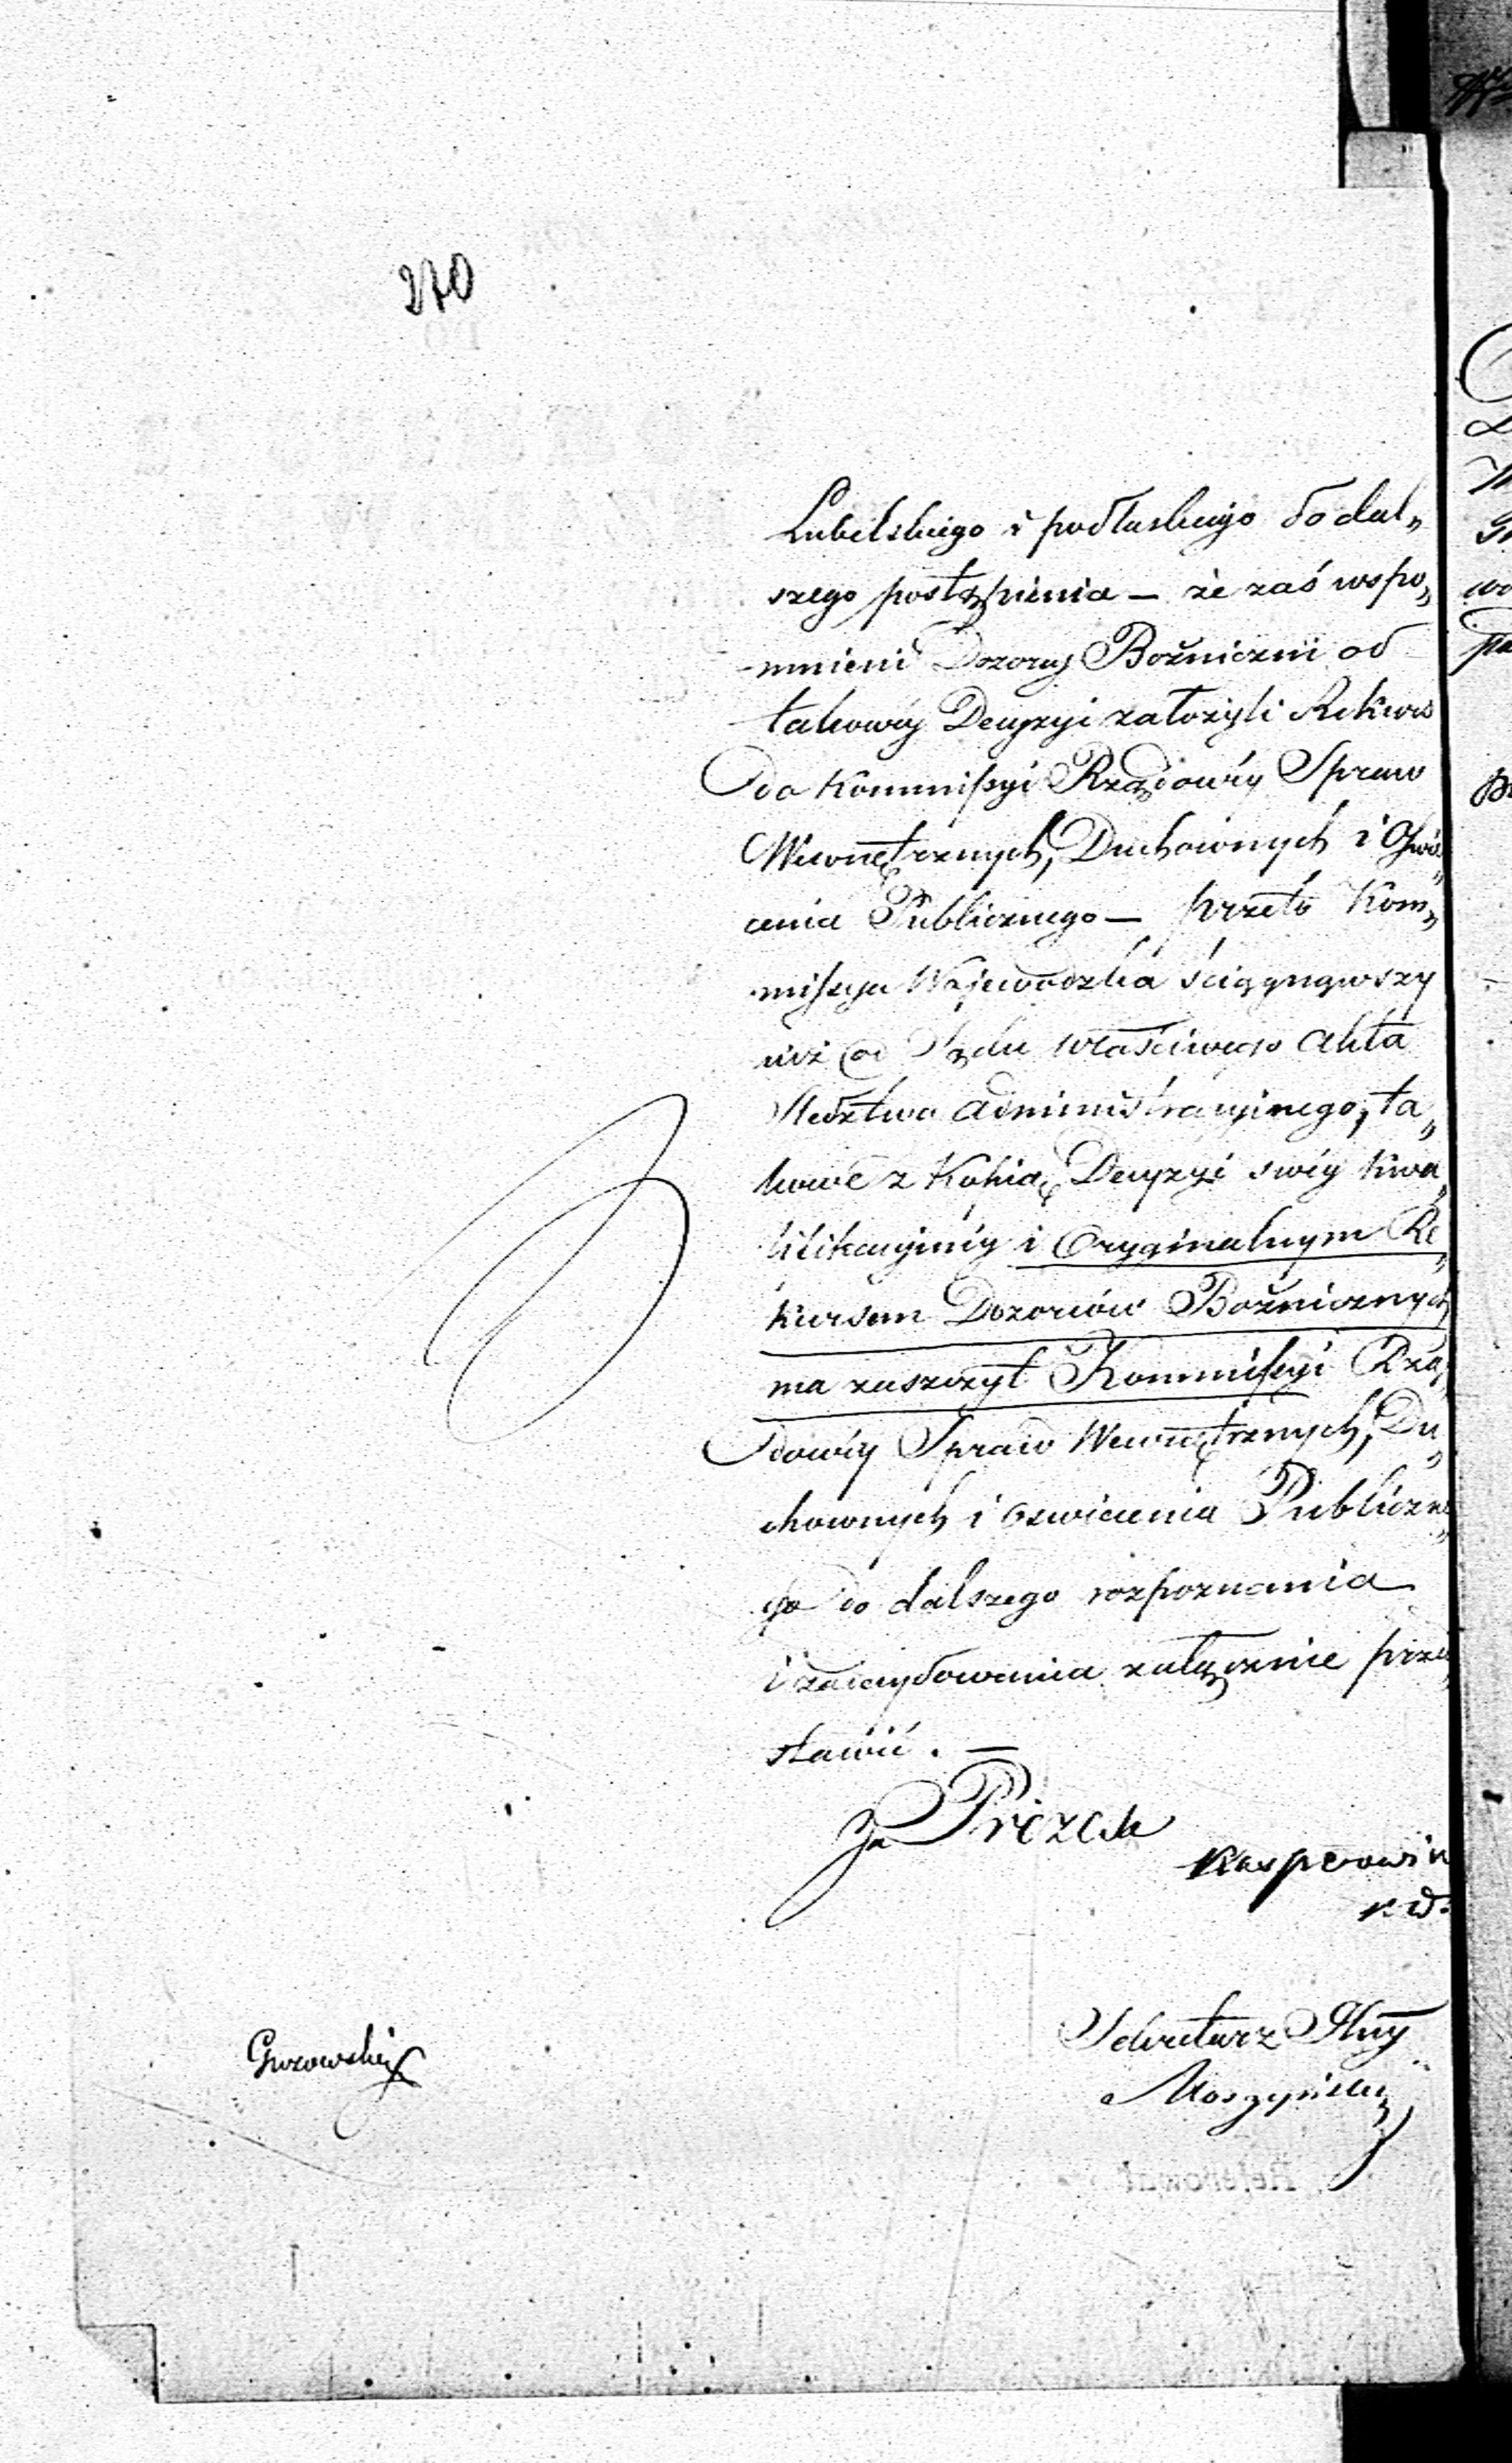 270
Lubelskiego i podlaskiego do dal„
szego postąpienia — że zaś wspo„
mnieni Dozorcy Bożniczni od
takowéy Decyzyi założyli Rekurs
do Kommissyi Rządowéy Spraw
Wewnętrznych, Duchownych i Oświe„
cenia Publicznego — przeto Kom„
missya Wojewódzka ściągnąwszy
już od Sądu właściwego akta
śledztwa administracyjnego, ta„
kowe z Kopią Decyzyi swéy kwa„
lifikacyjnéy i Oryginalnym Re„
kursem Dozorców Bożnicznych
ma zaszczyt Kommissyi Rzą„
dowéy Spraw Wewnętrznych, Du„
chownych i oświecenia Publiczne„
go do dalszego rozpoznania
i zadecydowania załącznie przed„
stawić. —
Za Prezesa
Sekretarz Jlny